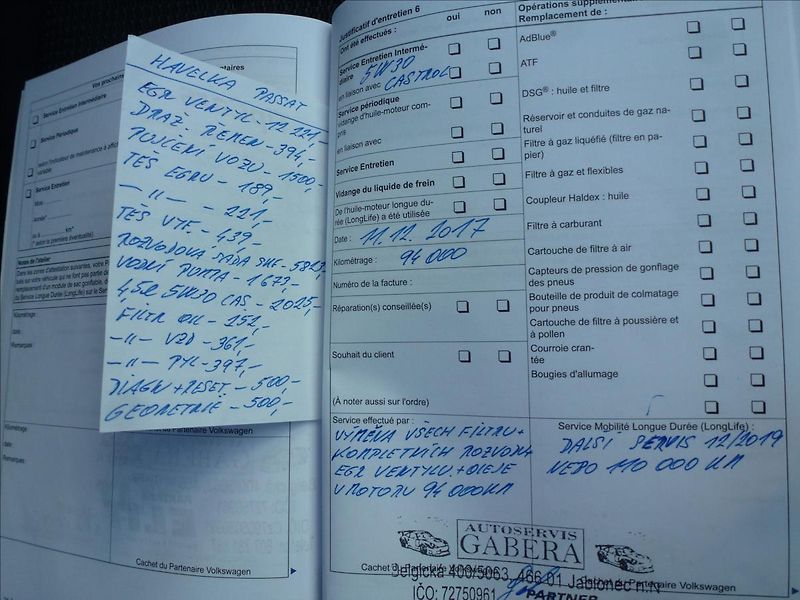 Vos prochains
taires
Service Entretien Intermédiaire
Service Périodique
selon l'indicateur de maintenance à affich
variable
Service Entretien
Mois
année*
ou km*
(* selon la première éventualité)
Notes de l'atelier
Kilométrage :
date:
Remarques:
Kilométrage
date:
Remarques:
du Partenaire Volkswagen
Cachet du Partenaire Volkswagen
HAVELKA PASSAT
EGR VENTYL - 12 221,-
DRAŽ. ŘEMEN - 394,-
PŮJČENÍ VOZU - 1500,-
TĚS EGRU - 189,-
— 11 — 221,-
TĚS VTF. - 439,-
ROZVODOVÁ SADA SKF - 5813,-
VODNÍ PUMPA - 1673,-
4,5l 5W30 CAS - 2025,-
FILTR OIL - 252,-
-11- VZD - 361,-
-11- PYL - 397,-
DIAGN + RESET. - 500,-
GEOMETRIE - 500,-
Justificatif d'entretien 6
Ont été effectués :
oui non
Service Entretien Intermé-
diaire 5W30
en liaison avec CASTROL
Service périodique
vidange d'huile-moteur com-
pris
en liaison avec
Service Entretien
Vidange du liquide de frein
De l'huile-moteur longue du-
rée (LongLife) a été utilisée
Date : 11.12.2017
Kilométrage : 94 000
Numéro de la facture :
Réparation(s) conseillée(s)
Souhait du client
(À noter aussi sur l'ordre)
Service effectué par :
VÝMĚNA VŠECH FILTRŮ +
KOMPLETNÍCH ROZVODŮ +
EGR VENTYLU + OLEJE
V MOTORU 94 000KM
Opérations supplémentaires
Remplacement de :
AdBlue®
ATF
DSG® : huile et filtre
Réservoir et conduites de gaz na-
turel
Filtre à gaz liquéfié (filtre en pa-
pier)
Filtre à gaz et flexibles
Coupleur Haldex : huile
Filtre à carburant
Cartouche de filtre à air
Capteurs de pression de gonflage
des pneus
Bouteille de produit de colmatage
pour pneus
Cartouche de filtre à poussière et
à pollen
Courroie cran-
tée
Bougies d'allumage
Service Mobilité Longue Durée (LongLife) :
DALŠÍ SERVIS 12/2019
NEBO 110 000 KM
AUTOSERVIS
GABERA
Cachet du Partenaire Volkswagen
Cachet du Partenaire Volkswagen
Belgická 400/5063, 466 01 Jablonec n.N
IČO: 72750961
PARTNER